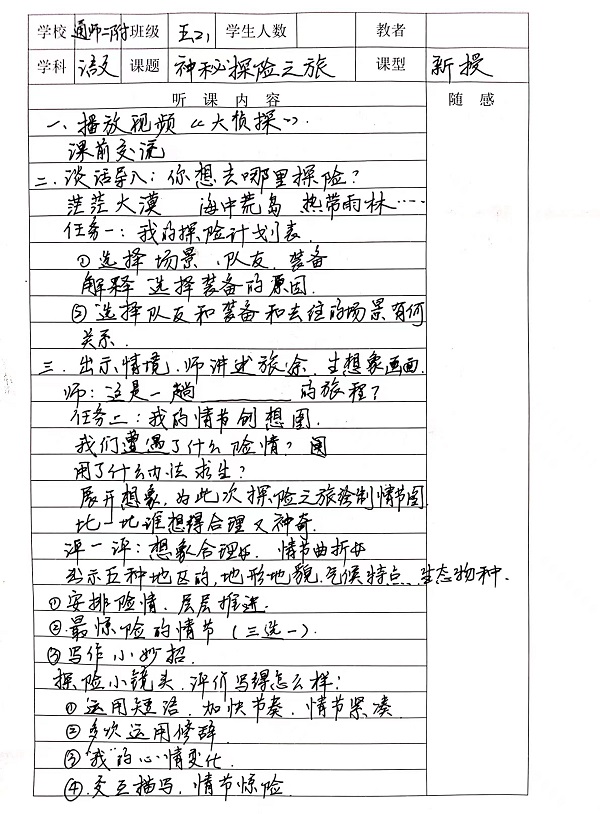 学校 通师二附 班级 五21 学生人数 教者
学科 语文 课题 神秘探险之旅 课型 新授
听课内容 随感
一、播放视频《大侦探》.
课前交流
二、谈话导入：你想去哪里探险？
茫茫大漠 海中荒岛 热带雨林……
任务一：我的探险计划表.
①选择场景、队友、装备
解释选择装备的原因.
②选择队友和装备和去往的场景有何
关系.
三、出示情境.师讲述旅途.生想象画面.
师：这是一趟________的旅程？
任务二：我的情节创想图.
我们遭遇了什么险情？
用了什么办法求生？
展开想象，为此次探险之旅绘制情节图.
比一比谁想得合理又神奇.
评一评：想象合理☆ 情节曲折☆
出示五种地区的，地形地貌、气候特点、生态物种.
①安排险情，层层推进.
②最惊险的情节（三选一）.
③写作小妙招.
探险小镜头，评价写得怎么样？
①运用短语，加快节奏，情节紧凑
②多次运用修辞
③“我”的心情变化.
④交互描写，情节惊险.